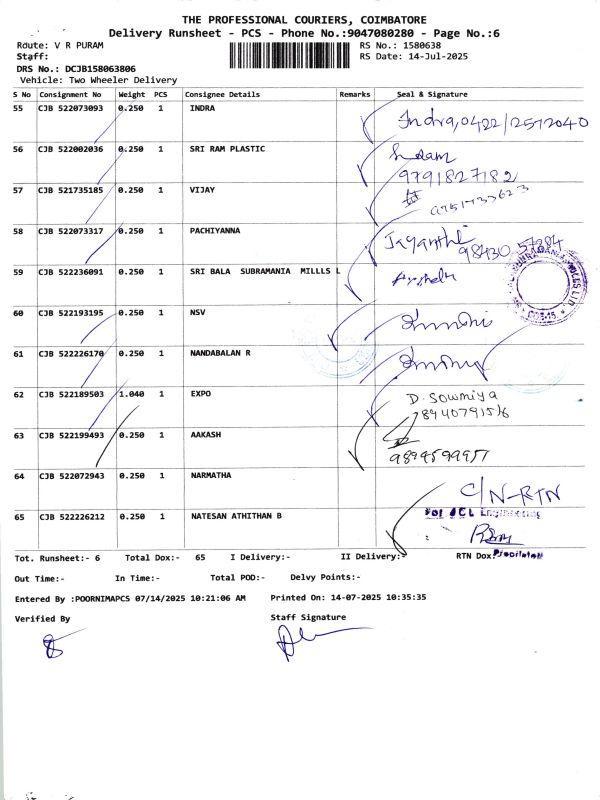 THE PROFESSIONAL COURIERS, COIMBATORE
Delivery Runsheet - PCS - Phone No.:9047080280 - Page No.:6
Route: V R PURAM
RS No.: 1580638
Staff:
RS Date: 14-Jul-2025
DRS No.: DCJB158063806
Vehicle: Two Wheeler Delivery
S No Consignment No Weight PCS Consignee Details Remarks Seal & Signature
55 CJB 522073093 0.250 1 INDRA Indra,0422/2572040
56 CJB 522002036 0.250 1 SRI RAM PLASTIC
9791827182
57 CJB 521735185 0.250 1 VIJAY
58 CJB 522073317 0.250 1 PACHIYANNA Jayanthi 98430 57284
59 CJB 522236091 0.250 1 SRI BALA SUBRAMANIA MILLLS L
60 CJB 522193195 0.250 1 NSV
61 CJB 522226170 0.250 1 NANDABALAN R
62 CJB 522189503 1.040 1 EXPO D. Sowmiya
63 CJB 522199493 0.250 1 AAKASH
64 CJB 522072943 0.250 1 NARMATHA C/N-RTN
For JCL Engineering
65 CJB 522226212 0.250 1 NATESAN ATHITHAN B
Tot. Runsheet:- 6 Total Dox:- 65 I Delivery:- II Delivery:- RTN Dox:-
Out Time:- In Time:- Total POD:- Delvy Points:-
Entered By :POORNIMAPCS 07/14/2025 10:21:06 AM Printed On: 14-07-2025 10:35:35
Verified By Staff Signature